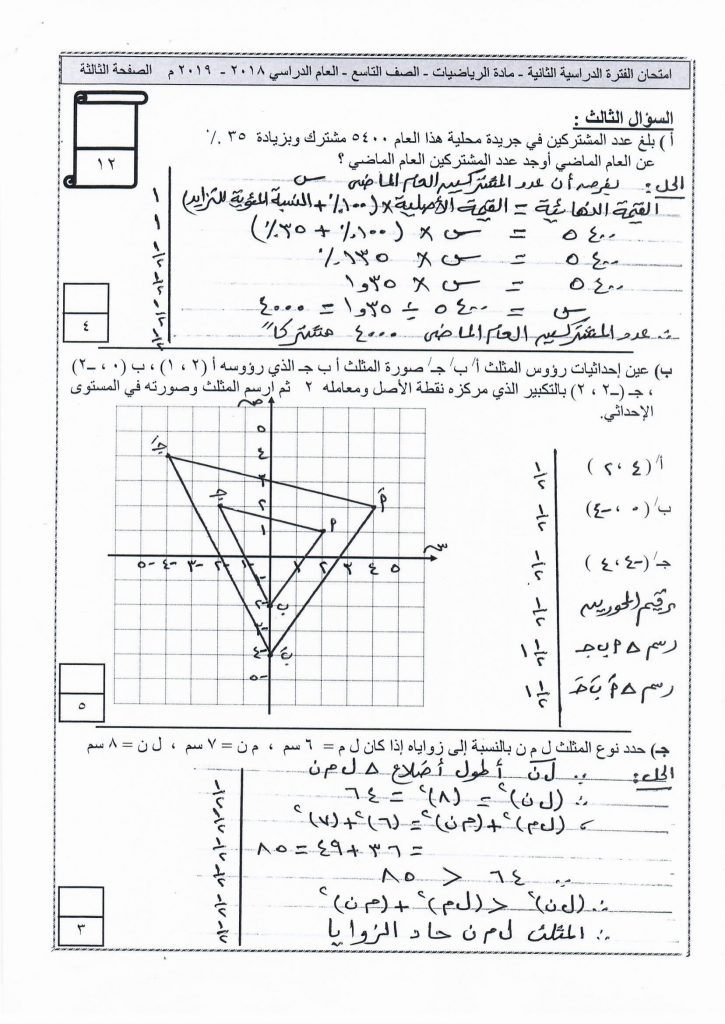 امتحان الفترة الدراسية الثانية - مادة الرياضيات - الصف التاسع - العام الدراسي ٢٠١٨ - ٢٠١٩ م الصفحة الثالثة
١٢
السؤال الثالث :
أ) بلغ عدد المشتركين في جريدة محلية هذا العام ٥٤٠٠ مشترك وبزيادة ٣٥ ٪
عن العام الماضي أوجد عدد المشتركين العام الماضي ؟
الحل : بفرض أن عدد المشتركين العام الماضي س
القيمة النهائية = القيمة الأصلية × (١٠٠٪ + النسبة المئوية للتزايد) ١
٥٤٠٠ = س × (١٠٠٪ + ٣٥٪) ١
٥٤٠٠ = س × ١٣٥٪ ١/٢
٥٤٠٠ = س × ١,٣٥ ١/٢
س = ٥٤٠٠ ÷ ١,٣٥ = ٤٠٠٠ ١/٢
∴ عدد المشتركين العام الماضي ٤٠٠٠ مشتركاً ١/٢
٤
ب) عين إحداثيات رؤوس المثلث أ/ ب/ جـ/ صورة المثلث أ ب جـ الذي رؤوسه أ (٢ ، ١) ، ب (٠ ، -٢)
، جـ (-٢ ، ٢) بالتكبير الذي مركزه نقطة الأصل ومعامله ٢ ثم ارسم المثلث وصورته في المستوى
الإحداثي.
أ/ (٤ ، ٢) ١/٢
ب/ (٠ ، -٤) ١/٢
جـ/ (-٤ ، ٤) ١/٢
ترقيم المحورين ١/٢
رسم △ أ ب جـ ١ ١/٢
رسم △ أَ بَ جَـ ١ ١/٢
ص
٥
٤
٣
٢
١
-٥ -٤ -٣ -٢ -١ ١ ٢ ٣ ٤ ٥ س
-١
-٢
-٣
-٤
-٥
جـَ
جـ
أَ
أ
ب
بَ
٥
جـ) حدد نوع المثلث ل م ن بالنسبة إلى زواياه إذا كان ل م = ٦ سم ، م ن = ٧ سم ، ل ن = ٨ سم
الحل : ∵ ل ن أطول أضلاع △ ل م ن
∴ (ل ن)٢ = (٨)٢ = ٦٤ ١/٢
، (ل م)٢ + (م ن)٢ = (٦)٢ + (٧)٢ ١/٢
= ٣٦ + ٤٩ = ٨٥ ١/٢
∵ ٦٤ < ٨٥ ١/٢
∴ (ل ن)٢ < (ل م)٢ + (م ن)٢ ١/٢
∴ المثلث ل م ن حاد الزوايا ١/٢
٣